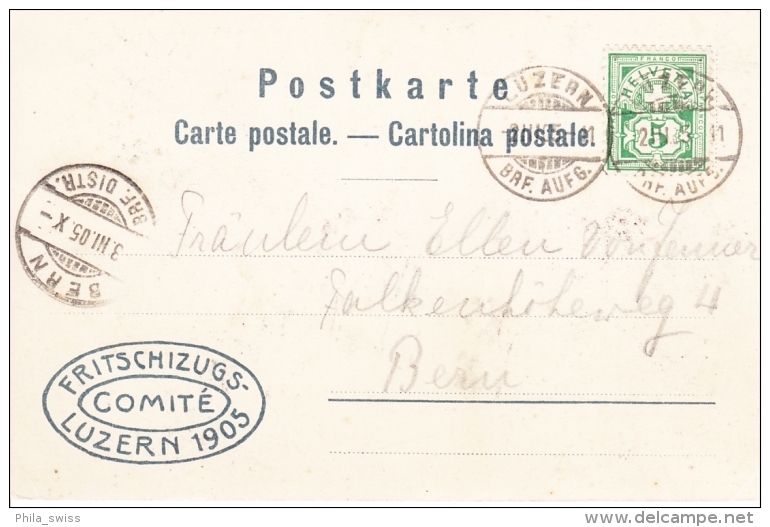 Postkarte
Carte postale. — Cartolina postale.
LUZERN
BRF. AUFG.
FRANCO
HELVETIA
5
BRF. AUFG.
BRF. DISTR.
3.III.05.X-
BERN
Fräulein Ellen von Jenner
Falkenhöheweg 4
Bern
FRITSCHIZUGS-
COMITÉ
LUZERN 1905
Phila_swiss
www.delcampe.net